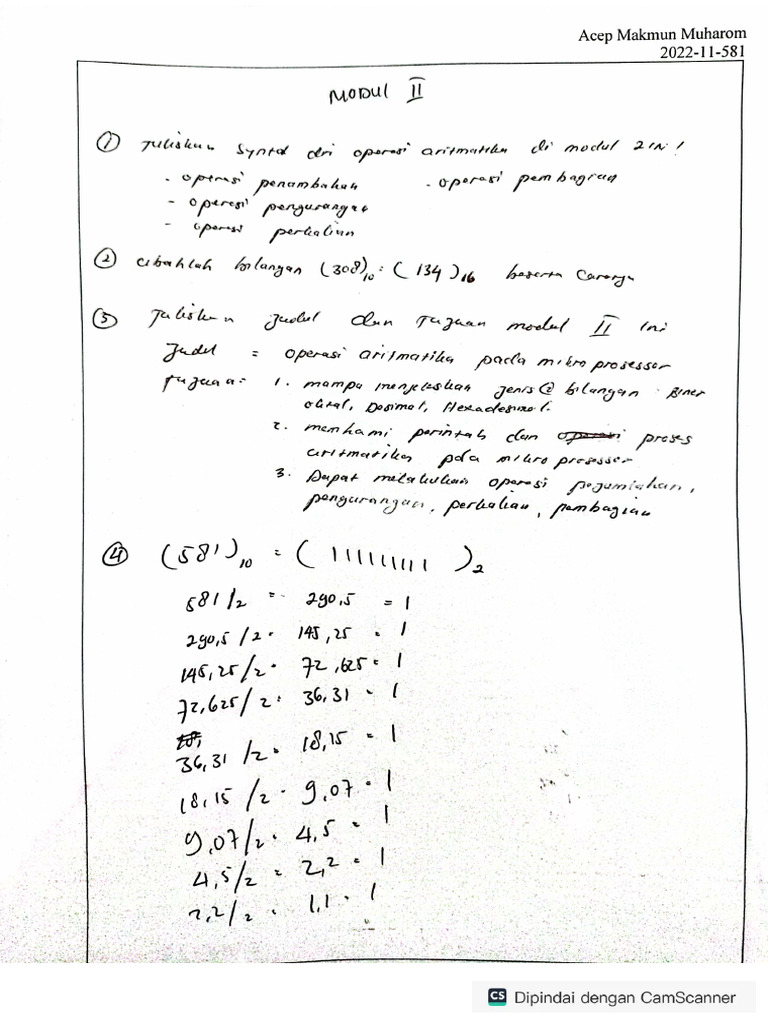 Acep Makmun Muharom
2022-11-581
MODUL II
① Tuliskan Syntal dri operasi aritmatika di modul 2 ini!
- operasi penambahan - operasi pembagian
- operasi pengurangan
- operasi perkalian
② Ubahlah bilangan (308)10 = (134)16 beserta Caranya
③ Tuliskan Judul dan Tujuan modul II ini
Judul = operasi aritmatika pada mikroprosessor
Tujuan = 1. mampu menjelaskan jenis@ bilangan Biner
oktal, Desimal, Hexadesimal.
2. memhami perintah dan operasi proses
aritmatika pda mikroprosessor
3. Dapat melakukan operasi pejumlahan,
pengurangan, perkalian, pembagian
④ (581)10 = (111111111)2
581/2 = 290,5 = 1
290,5/2 = 145,25 = 1
145,25/2 = 72,625 = 1
72,625/2 = 36,31 = 1
36,31/2 = 18,15 = 1
18,15/2 = 9,07 = 1
9,07/2 = 4,5 = 1
4,5/2 = 2,2 = 1
2,2/2 = 1,1 = 1
CS Dipindai dengan CamScanner